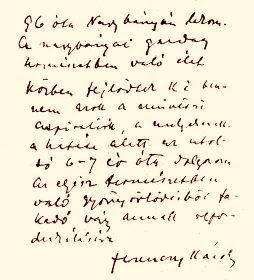 96 óta Nagybányán lakom.
A nagybányai gazdag
természetben való élet
körben fejlődtek ki ben-
nem azok a művészi
aspirációk, a melyeknek
a hatása alatt az utol-
só 6-7 év óta dolgozom
Az egész természetben
való gyönyörködésből fa-
kadó vágy annak repro-
dukálására
Ferenczy Károly